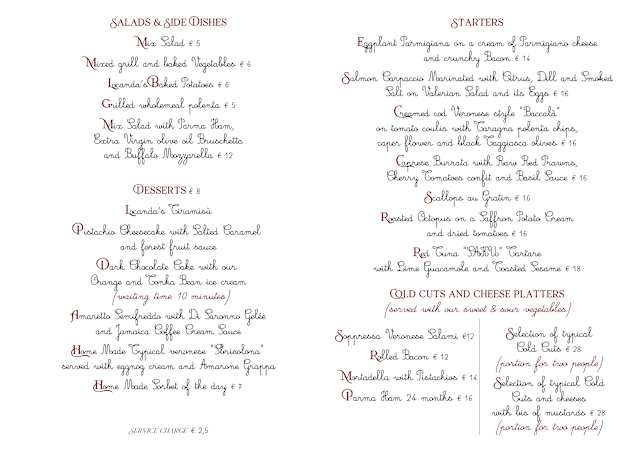 SALADS & SIDE DISHES
Mix Salad € 5
Mixed grill and baked Vegetables € 6
Locanda's Baked Potatoes € 6
Grilled wholemeal polenta € 5
Mix Salad with Parma Ham,
Extra Virgin olive oil Bruschetta
and Buffalo Mozzarella € 12
DESSERTS € 8
Locanda's Tiramisù
Pistachio Cheesecake with Salted Caramel
and forest fruit sauce
Dark Chocolate Cake with our
Orange and Tonka Bean ice cream
(waiting time 10 minutes)
Amaretto Semifreddo with Di Saronno Gelée
and Jamaica Coffee Cream Sauce
Home Made Typical veronese "Sbrisolona"
served with eggnog cream and Amarone Grappa
Home Made Sorbet of the day € 7
SERVICE CHARGE € 2,5
STARTERS
Eggplant Parmigiana on a cream of Parmigiano cheese
and crunchy Bacon € 14
Salmon Carpaccio Marinated with Citrus, Dill and Smoked
Salt on Valerian Salad and its Eggs € 16
Creamed cod Veronese style "Baccalà"
on tomato coulis with Taragna polenta chips,
caper flower and black Taggiasca olives € 16
Caprese Burrata with Raw Red Prawns,
Cherry Tomatoes confit and Basil Sauce € 16
Scallops au Gratin € 16
Roasted Octopus on a Saffron Potato Cream
and dried tomatoes € 16
Red Tuna "SAKU" Tartare
with Lime Guacamole and Toasted Sesame € 18
COLD CUTS AND CHEESE PLATTERS
(served with our sweet & sour vegetables)
Soppressa Veronese Salami €12
Rolled Bacon € 12
Mortadella with Pistachios € 14
Parma Ham 24 months € 16
Selection of typical
Cold Cuts € 28
(portion for two people)
Selection of typical Cold
Cuts and cheeses
with bis of mustards € 28
(portion for two people)